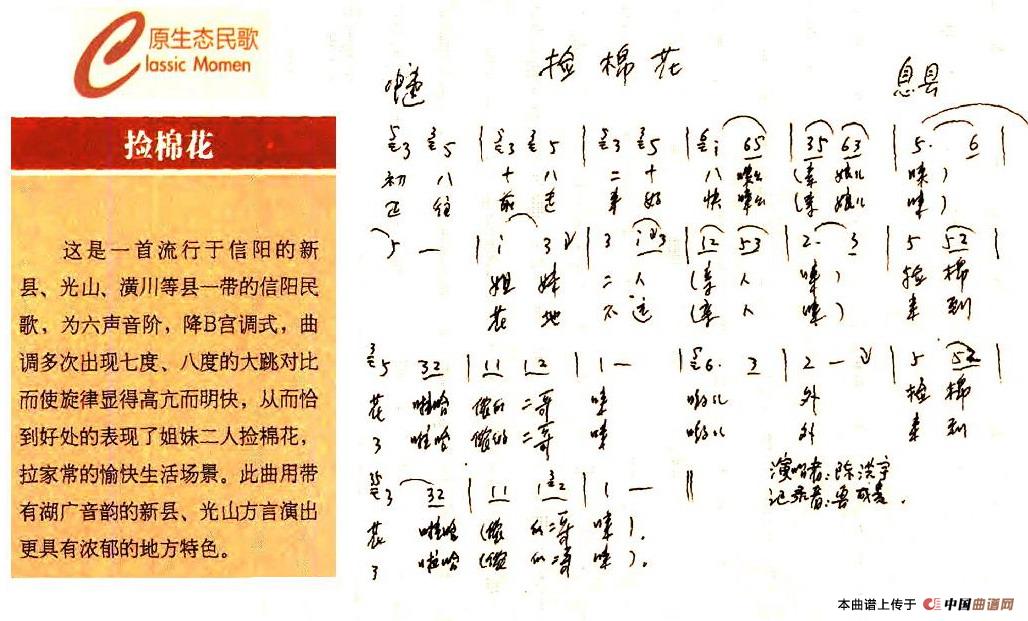 原生态民歌
Classic Momen
捡棉花
这是一首流行于信阳的新
县、光山、潢川等县一带的信阳民
歌，为六声音阶，降B宫调式，曲
调多次出现七度、八度的大跳对比
而使旋律显得高亢而明快，从而恰
到好处的表现了姐妹二人捡棉花，
拉家常的愉快生活场景。此曲用带
有湖广音韵的新县、光山方言演出
更具有浓郁的地方特色。
捡棉花
息县
初八 十八 二十 八 (亲 娘儿 唻)
正往 前走 来好 快 (亲 娘儿 唻)
5 — | i 3 | 3 i 3 | 12 53 | 2· 3 | 5 52 |
姐妹 二人 (亲人 唻) 捡棉
花地 不远 (亲人 唻) 来到
5 32 | 11 12 | 1 — | 6· 3 | 2 — | 5 52 |
花 啦哈 二哥 唻 外 捡棉
了 啦哈 二哥 唻 外 来到
3 32 | 11 12 | 1 — ‖
花 啦哈 二哥 唻)。
了 啦哈 二哥 唻)。
演唱者:陈洪宇
记录者:
本曲谱上传于 中国曲谱网